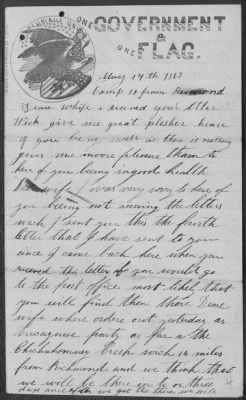 ONE GOVERNMENT
&
ONE FLAG.
COLUMBIA UNION
May 19th 1862
Camp 18 from Richmond
Deare Whife a receved your letter
Wich give me great plesher heare
of you being well as there is nothing
gives me moore plesure than to
here of you being in good health
Deare wife I was very sorry to here of
you beeing out receving the letters
wich I sent you this the fourth
letter that I have sent to you
since I came back here when you
receved this letter if you would go
to the post office most likely that
you will find them there Deare
wife where ordere out yesterday as
party as far a the
Chickahominy creek wich 14 miles
from Richmond and we think that
we will be there in to or three
days and after we get there we will